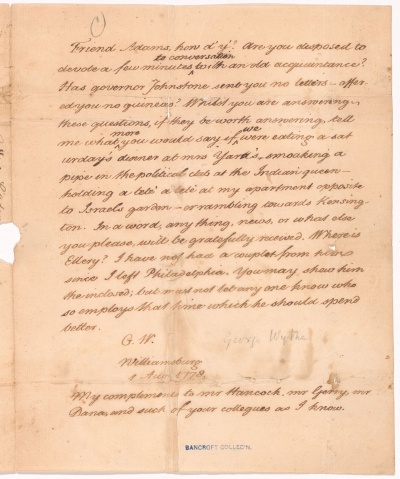 C)
Friend Adams, how d'y? Are you desposed to
to conversation
devote a few minutes with an old acquaintance?
Has governor Johnstone sent you no letters—offer-
ed you no guineas? Whilst you are answering
these questions, if they be worth answering, tell
more we
me what you would say if were eating a sat
urday's dinner at mrs Yard's, smoacking a
pipe in the political club at the Indian queen—
holding a tete a tete at my apartment opposite
to Israels garden—or rambling towards Kensing-
ton. In a word, any thing, news, or what else
you please, will be gratefully received. Where is
Ellery? I have not had a couplet from him
since I left Philadelphia. You may shew him
the inclosed; but must not let any one know who
so employs that time which he should spend
better.
G. W. George Wythe
Williamsburg
1 Aug. 1778.
My compliments to mr Hancock, mr Gerry, mr
Dana, and such of your collegues as I know.
BANCROFT COLLECT'N.